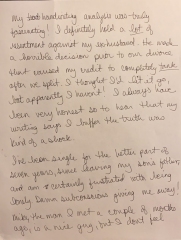 My handwriting analysis was truly
fascinating! I definitely hold a lot of
resentment against my ex-husband. He made
a horrible decision prior to our divorce
that caused my credit to completely tank
after we split. I thought I'd let it go,
but apparently I haven't! I always have
been very honest so to hear that my
writing says I buffer the truth was
kind of a shock.
I've been single for the better part of
seven years, since leaving my sons father,
and am certainly frustrated with being
lonely. Damn subconscious giving me away!
Mike, the man I met a couple of months
ago, is a nice guy, but I don't feel